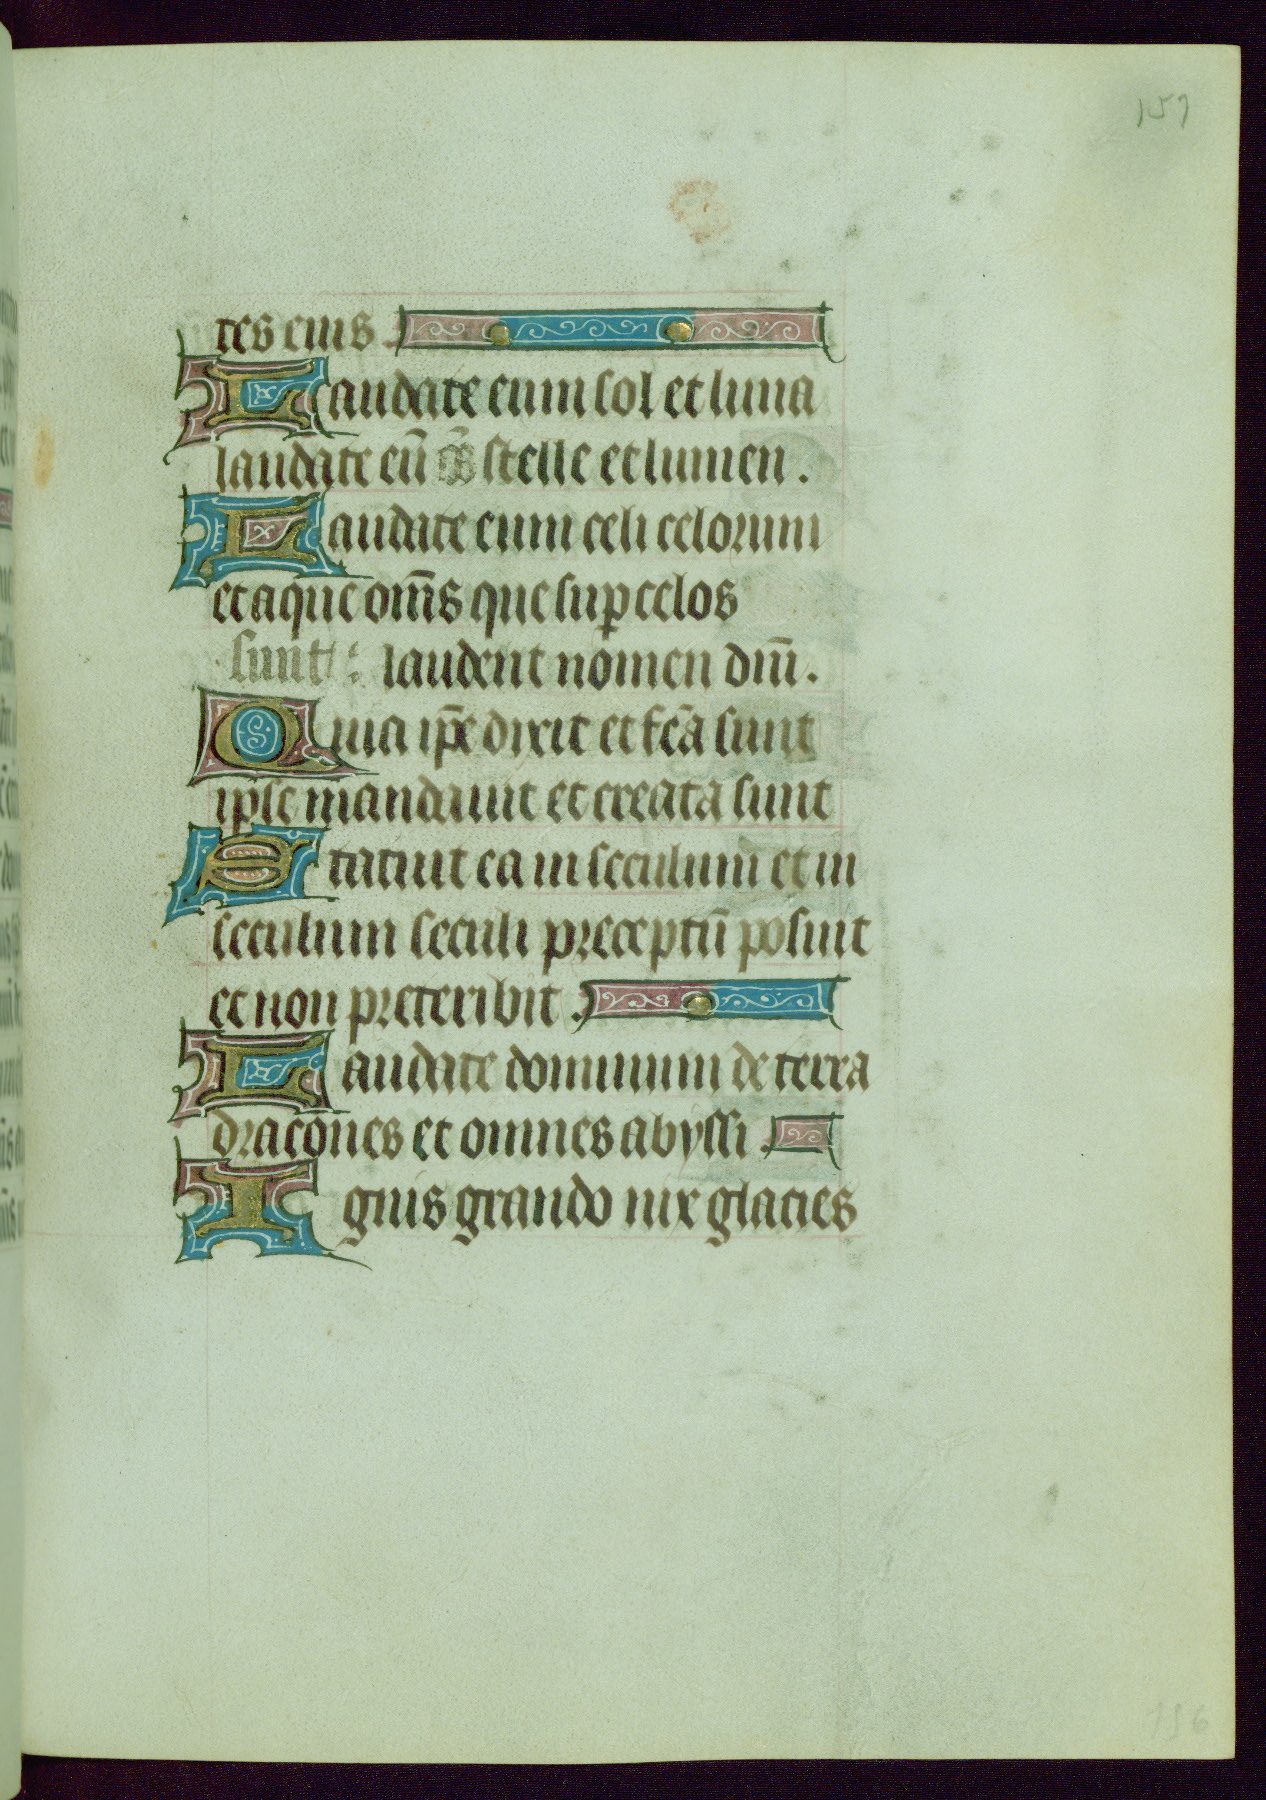 157
tes eius .
Laudate eum sol et luna
laudate eū oēs stelle et lumen .
Laudate eum celi celorum
et aque om̄s que suꝑ celos
sunt : laudent nomen dm̄i .
Quia ip̄e dixit et fcā sunt
ipse mandauit et creata sunt
Statuit ea in seculum et in
seculum seculi preceptū posuit
et non preteribit .
Laudate dominum de terra
dracones et omnes abyssi .
Ignis grando nix glacies
156